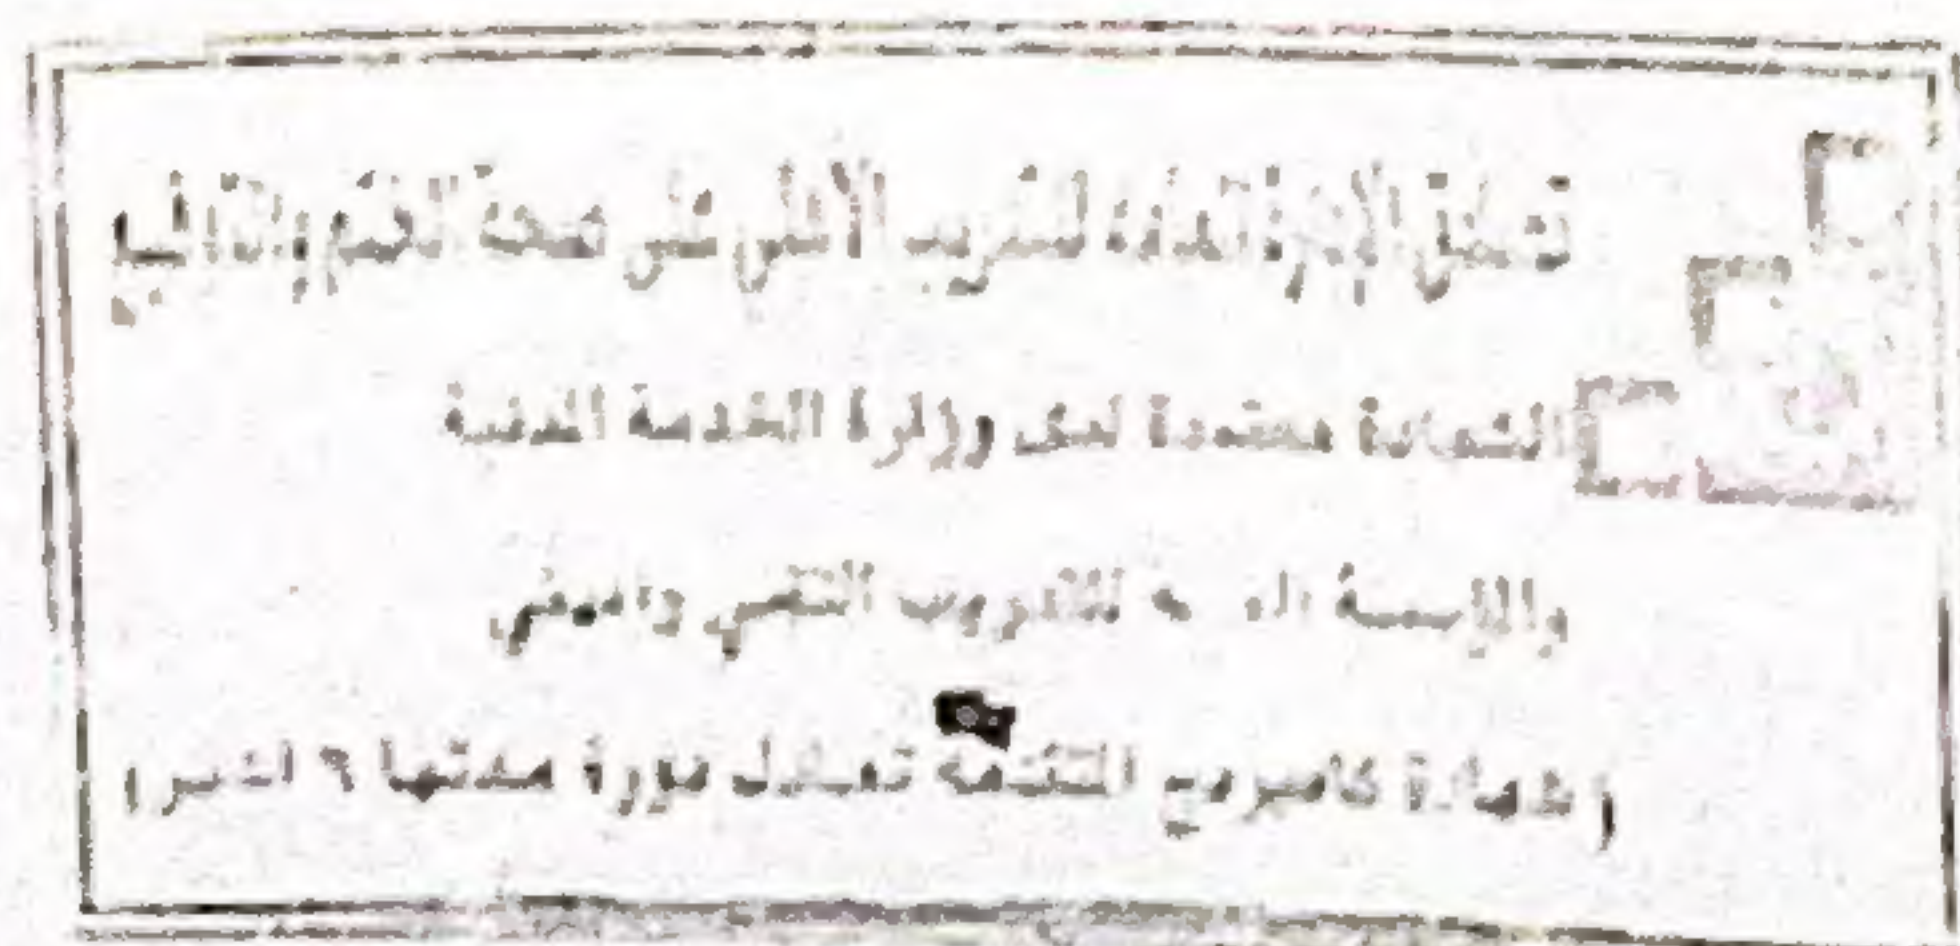 الإدارة العامة للتدريب الأهلي على صحة الختم
الشهادة معتمدة لدى وزارة الخدمة المدنية
والمؤسسة للتدريب التقني والمهني
( شهادة كامبردج التقنية تعادل دورة مدتها ٦ اشهر )